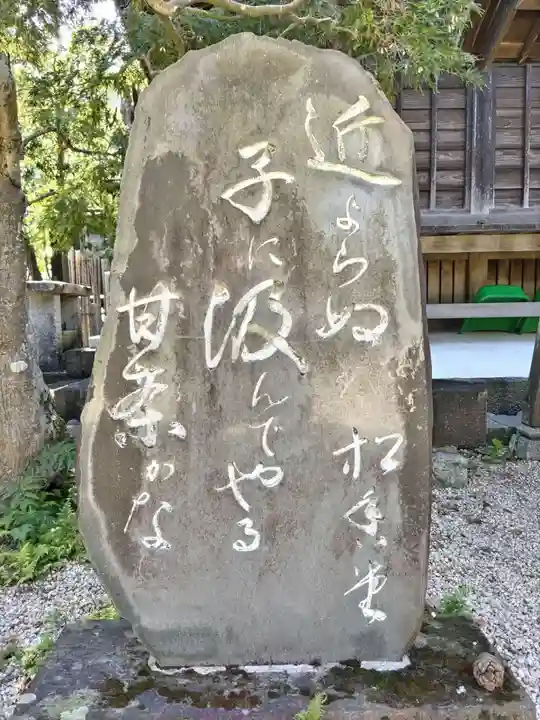 近よらぬ
子に汲んでやる
甘茶かな